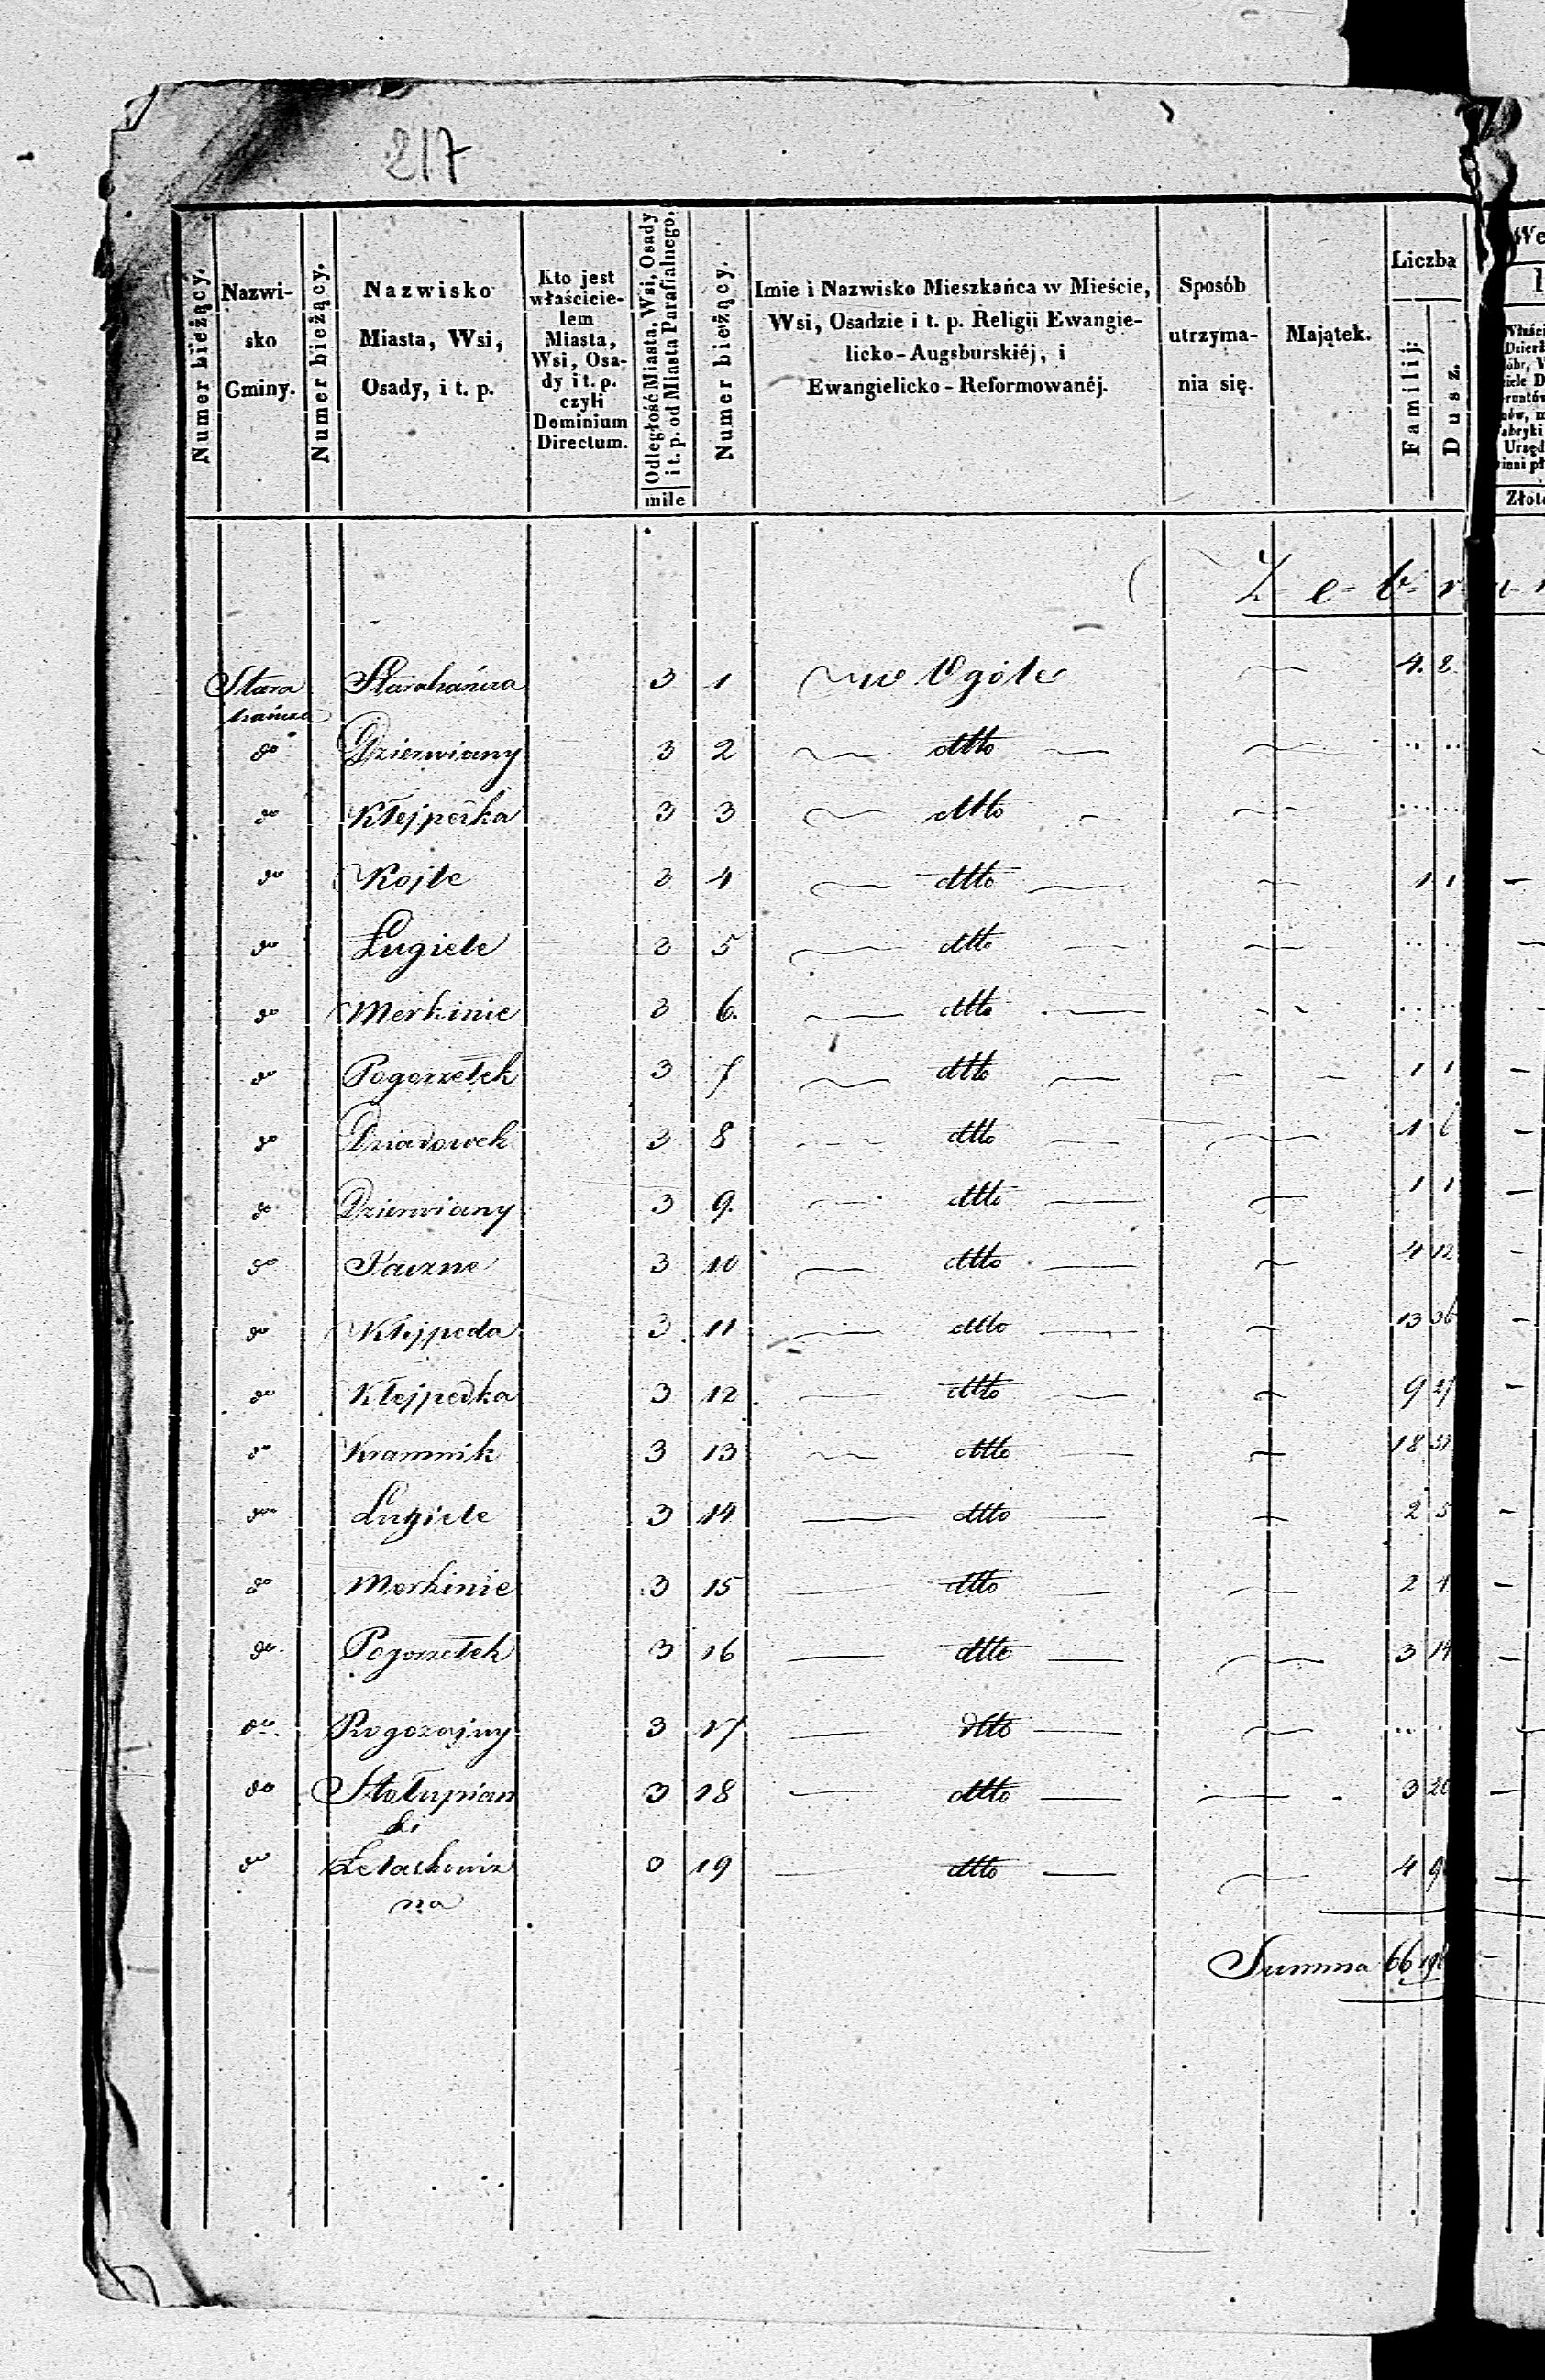 217
Numer bieżący.
Nazwi-
sko
Gminy.
Numer bieżący.
Nazwisko
Miasta, Wsi,
Osady, i t. p.
Kto jest
właścicie-
lem
Miasta,
Wsi, Osa-
dy i t. p.
czyli
Dominium
Directum.
Odległość Miasta, Wsi, Osady
i t. p. od Miasta Parafialnego.
mile
Numer bieżący.
Imie i Nazwisko Mieszkańca w Mieście,
Wsi, Osadzie i t. p. Religii Ewangie-
licko-Augsburskiéj, i
Ewangielicko-Reformowanéj.
Sposób
utrzyma-
nia się.
Majątek.
Liczba
Familij:
Dusz.
Złot
Z e b r
Stara Starahańcza 3 1 w Ogóle 4. 8.
hańcza
do Dzierwiany 3 2 dtto
do Kłejpedka 3 3 dtto
do Kojle 3 4 dtto 1 1
do Lugiele 3 5 dtto
do Merkinie 3 6. dtto
do Pogorzełek 3 7 dtto 1 1
do Dziadowek 3 8 dtto 1 6
do Dzierwiany 3 9. dtto 1 1
do Jaczne 3 10 dtto 4 12
do Kłejpeda 3 11 dtto 13 36
do Kłejpedka 3 12 dtto 9 27
do Kramnik 3 13 dtto 18
do Lugiele 3 14 dtto 2 5
do Merkinie 3 15 dtto 2 4
do Pogorzełek 3 16 dtto 3 14
do Rogozajny 3 17 dtto
do Stołupian 3 18 dtto 3
ki
do Lelaskowiz 3 19 dtto 4 9
na
Summa 66